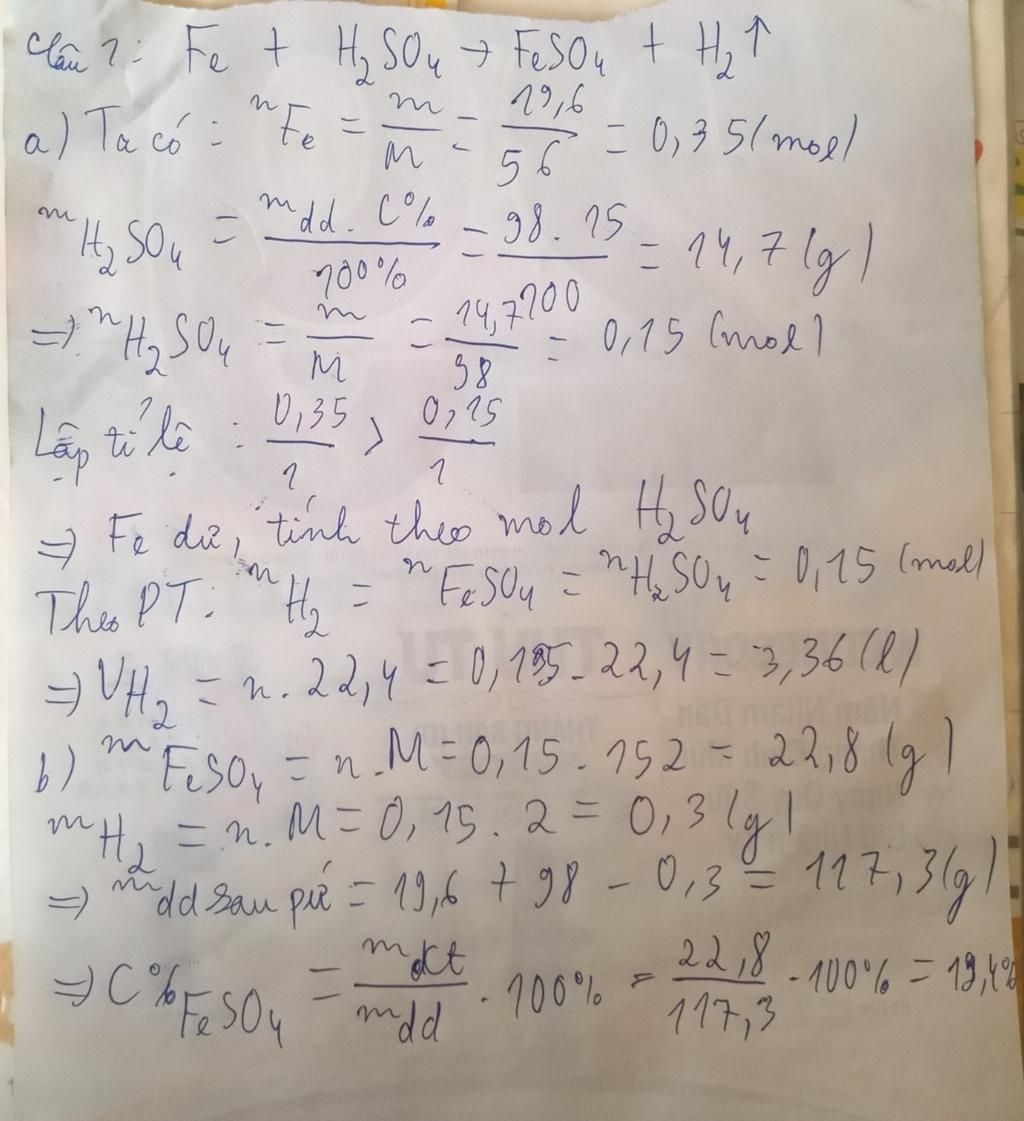 Câu 1: Fe + H2SO4 → FeSO4 + H2↑
a) Ta có: nFe = m/M = 19,6/56 = 0,35 (mol)
mH2SO4 = mdd. C%/100% = 98.15/100 = 14,7 (g)
=> nH2SO4 = m/M = 14,7/98 = 0,15 (mol)
Lập tỉ lệ: 0,35/1 > 0,15/1
=> Fe dư, tính theo mol H2SO4
Theo PT: nH2 = nFeSO4 = nH2SO4 = 0,15 (mol)
=> VH2 = n. 22,4 = 0,15. 22,4 = 3,36 (l)
b) mFeSO4 = n.M = 0,15. 152 = 22,8 (g)
mH2 = n. M = 0,15. 2 = 0,3 (g)
=> mdd sau pứ = 19,6 + 98 - 0,3 = 117,3 (g)
=> C%FeSO4 = mct/mdd . 100% = 22,8/117,3 . 100% = 19,4%